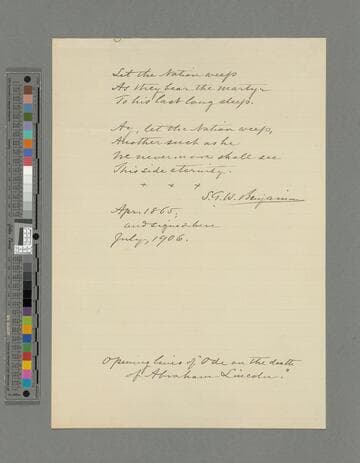 Let the Nation weep
As they bear the martyr
To his last long sleep.
Ay, let the Nation weep,
Another such as he
We nevermore shall see
This side eternity.
+ + +
S.G.W. Benjamin
Apr. 1865,
and signed here
July, 1906.
Opening lines of "Ode on the death
of Abraham Lincoln."